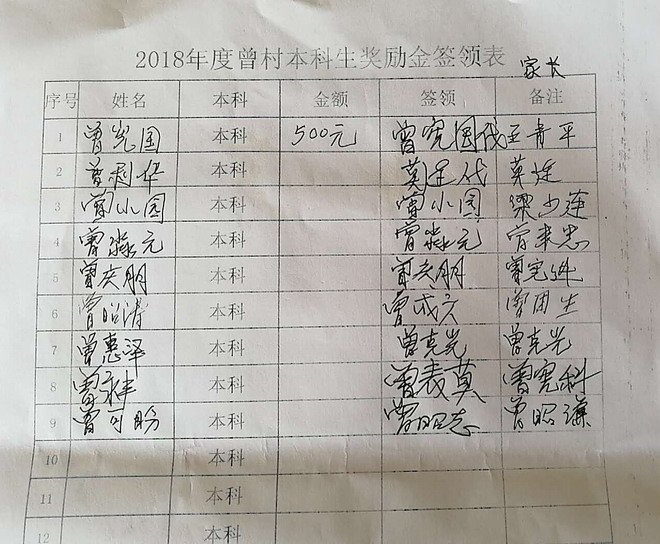 2018年度曾村本科生奖励金签领表
家长
序号 姓名 本科 金额 签领 备注
1 曾宪国 本科 500元 曾宪国代 王青平
2 曾 华 本科 莫连代 莫连
3 曾小园 本科 曾小园 梁少莲
4 曾淼元 本科 曾淼元 忠
5 曾庆朋 本科 曾庆朋 曾宪
6 曾昭涛 本科 曾成 曾 生
7 曾惠泽 本科 曾克光 曾克光
8 曾 本科 曾表莫 曾宪科
9 曾可盼 本科 曾昭志 曾昭谦
10 本科
11 本科
12 本科